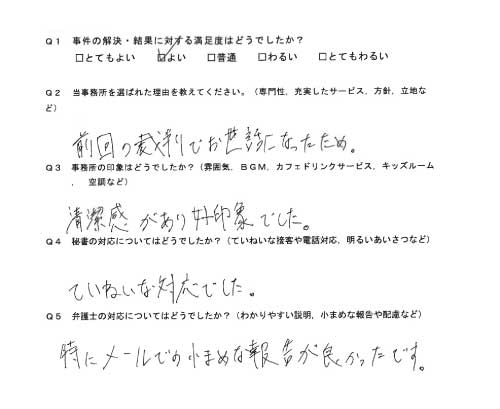 Q1 事件の解決・結果に対する満足度はどうでしたか?
□とてもよい ☑よい □普通 □わるい □とてもわるい
Q2 当事務所を選ばれた理由を教えてください。(専門性，充実したサービス，方針，立地な
ど)
前回の裁判でお世話になったため。
Q3 事務所の印象はどうでしたか?(雰囲気，BGM，カフェドリンクサービス，キッズルーム
， 空調など)
清潔感があり好印象でした。
Q4 秘書の対応についてはどうでしたか?(ていねいな接客や電話対応，明るいあいさつなど)
ていねいな対応でした。
Q5 弁護士の対応についてはどうでしたか?(わかりやすい説明，小まめな報告や配慮など)
特にメールでの小まめな報告が良かったです。